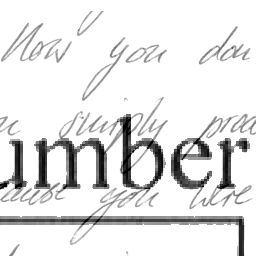 Now you don
simply prod
umber
cause you were